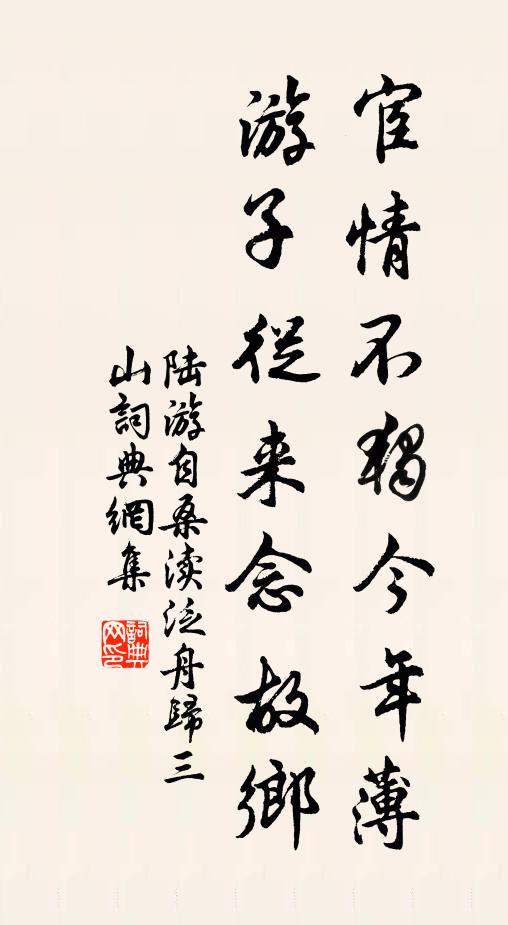 宦情不獨今年薄
游子從来念故鄉
陆游自桑渎泛舟歸三
山詞典網集
詞典
网印